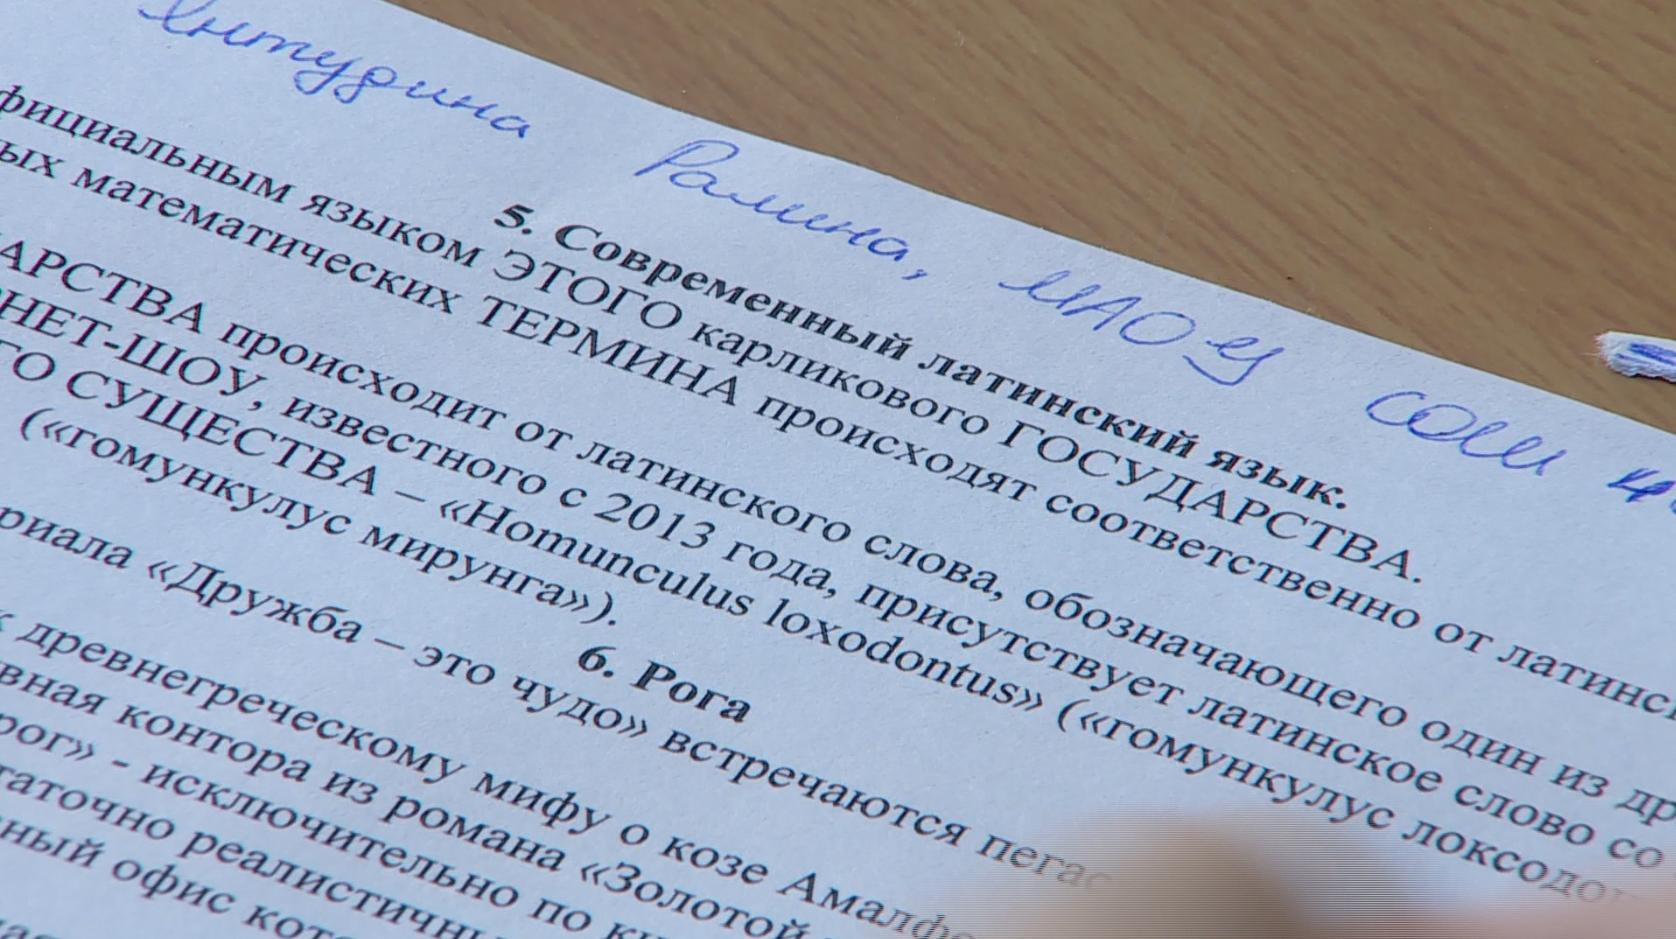 Янтудина Ралина, МАОУ СОШ
5. Современный латинский язык.
фициальным языком ЭТОГО карликового ГОСУДАРСТВА.
ых математических ТЕРМИНА происходят соответственно от латинс
АРСТВА происходит от латинского слова, обозначающего один из др
НЕТ-ШОУ, известного с 2013 года, присутствует латинское слово со
ГО СУЩЕСТВА – «Homunculus loxodontus» («гомункулус локсодо
(«гомункулус мирунга»).
6. Рога
риала «Дружба – это чудо» встречаются пегас
к древнегреческому мифу о козе Амалфе
вная контора из романа «Золотой
рог» - исключительно по
таточно реалистичны
ный офис кото